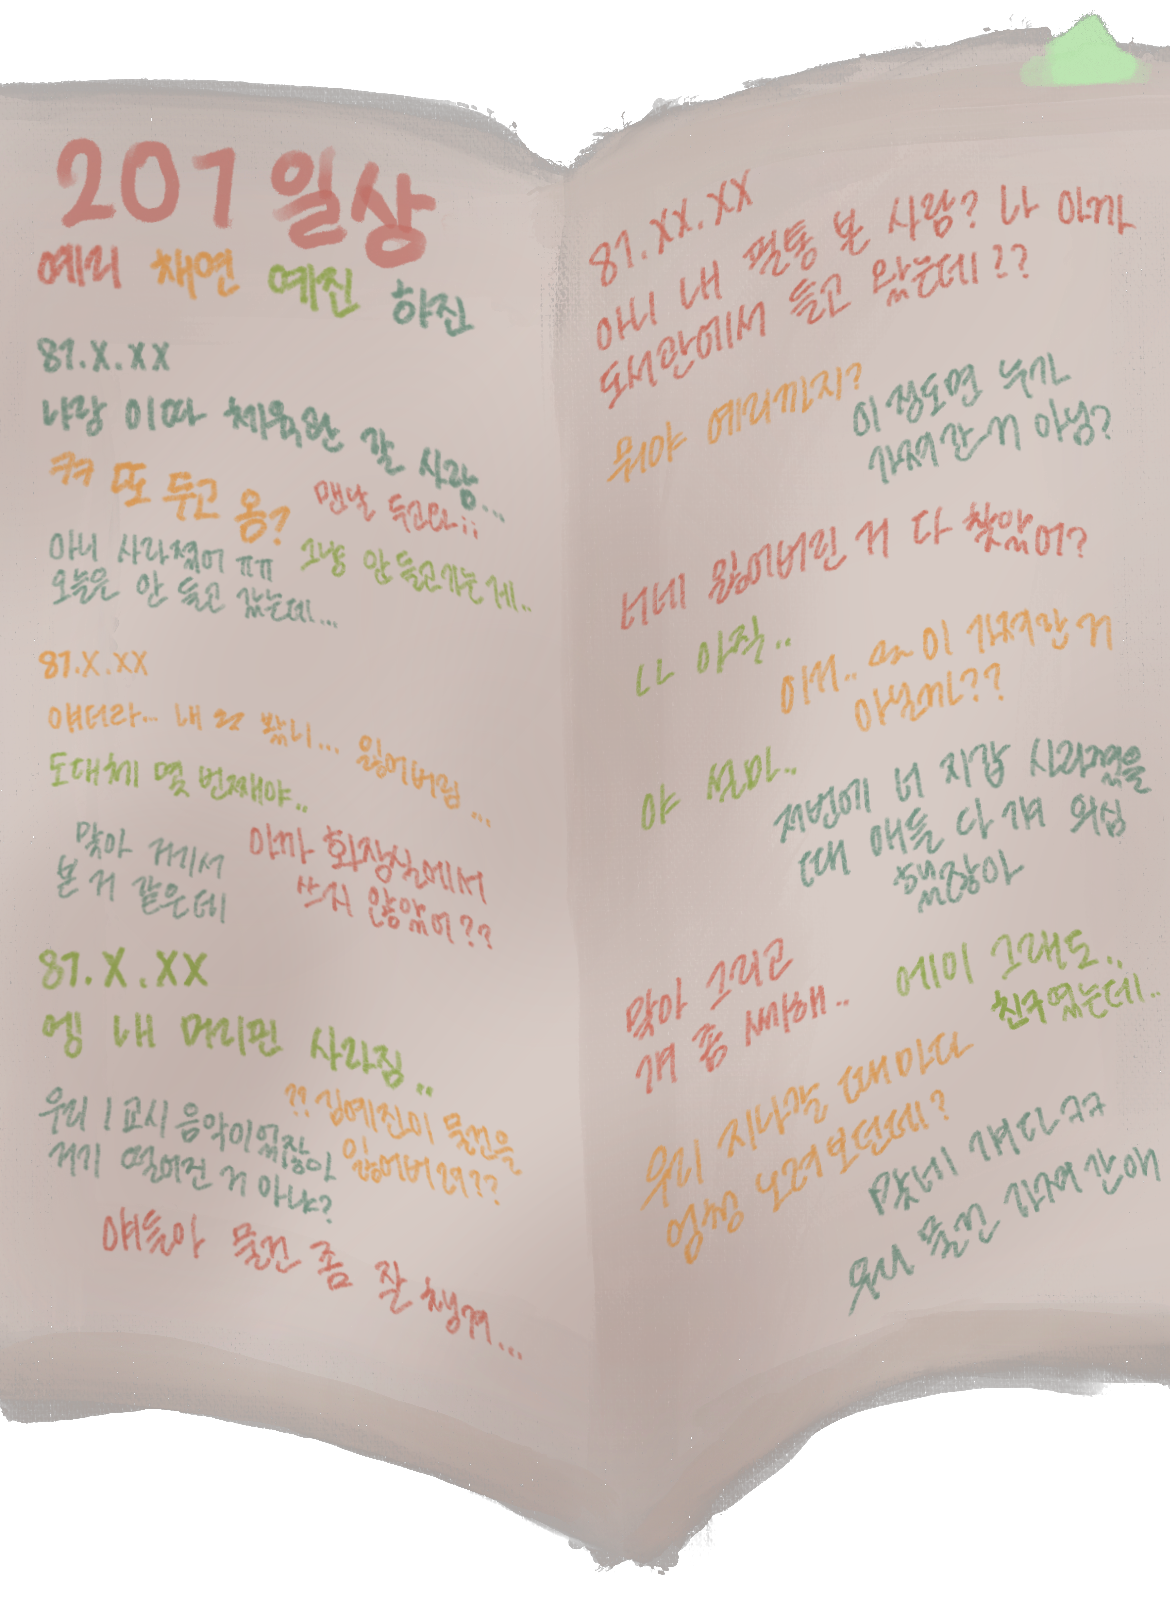 207 일상
예리 채연 예진 하진
87.X.XX
나랑 이따 체육관 갈 사람...
ㅋㅋ 또 두고 옴?
맨날 두고와;;
아니 사라졌어 ㅠㅠ
오늘은 안 들고 갔는데...
그냥 안 들고가는 게..
87.X.XX
얘더라... 내 봤니... 잃어버림...
도대체 몇 번째야..
맞아 거기서
본 거 같은데
아까 화장실에서
쓰지 않았어??
87.X.XX
엥 내 머리핀 사라짐..
우리 1교시 음악이었잖아
거기 떨어진 거 아냐?
?? 김예진이 물건을
잃어버려??
얘들아 물건 좀 잘 챙겨...
87.XX.XX
아니 내 필통 본 사람? 나 아까
도서관에서 들고 왔는데??
뭐야 예리까지?
이 정도면 누가
가져간 거 아님?
너네 잃어버린 거 다 찾았어?
ㄴㄴ 아직..
이거.. 이 가져간 거
아닐까??
야 설마..
저번에 너 지갑 사라졌을
때 애들 다 걔 의심
했잖아
맞아 그리고
걔 좀 싸해..
에이 그래도..
친구였는데..
우리 지나갈 때마다
엄청 노려보던데?
맞네 걔다ㅋㅋ
우리 물건 가져간 애